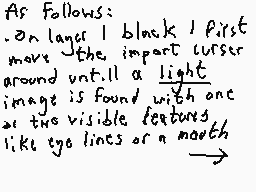 As follows:
. On layer 1 black I first
move the import curser
around untill a light
image is found with one
or two visible features
like eye lines or a mouth